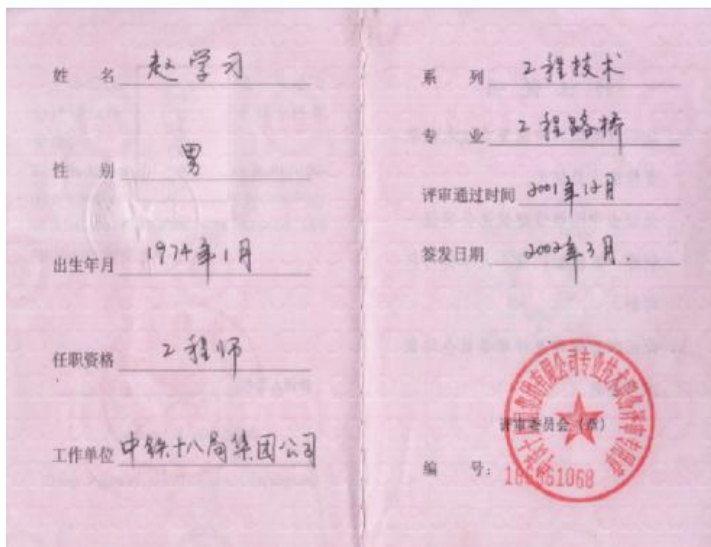 姓 名 赵学习
性 别 男
出生年月 1974年1月
任职资格 工程师
工作单位 中铁十八局集团公司
系 列 工程技术
专 业 工程路桥
评审通过时间 2001年12月
签发日期 2002年3月.
评审委员会（章）
编 号：